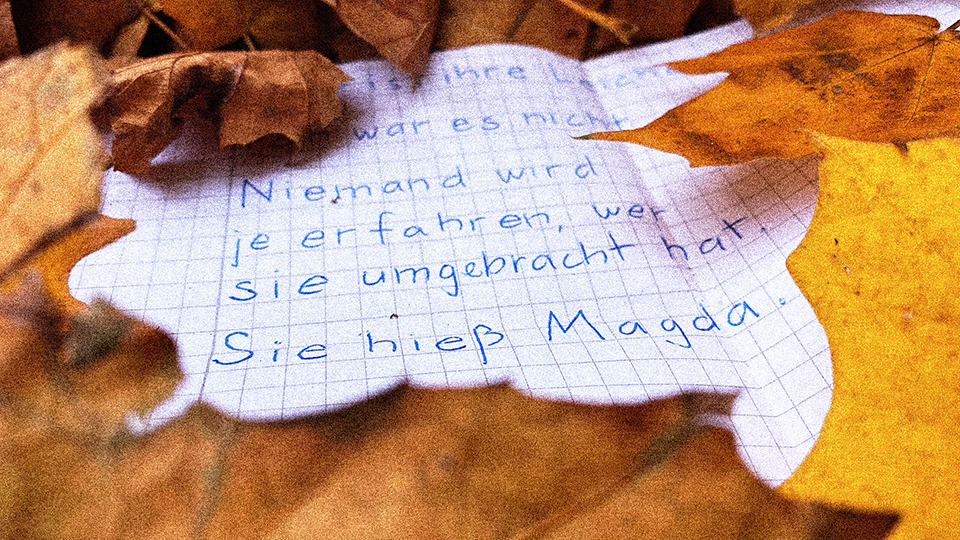 ist ihre Leiche
war es nicht
Niemand wird
je erfahren, wer
sie umgebracht hat.
Sie hieß Magda.